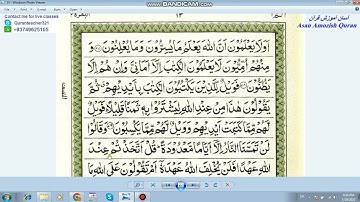 WWW.BANDICAM.COM
Contact me for live classes
Quranteacher321
+93749625105
آسان آموزش قرآن
Asan Amozish Quran
١٣
اَوَلَا يَعْلَمُوْنَ اَنَّ اللّٰهَ يَعْلَمُ مَا يُسِرُّوْنَ وَمَا يُعْلِنُوْنَ
وَمِنْهُمْ اُمِّيُّوْنَ لَا يَعْلَمُوْنَ الْكِتٰبَ اِلَّاۤ اَمَانِيَّ وَاِنْ هُمْ اِلَّا
يَظُنُّوْنَ فَوَيْلٌ لِّلَّذِيْنَ يَكْتُبُوْنَ الْكِتٰبَ بِاَيْدِيْهِمْ ثُمَّ
يَقُوْلُوْنَ هٰذَا مِنْ عِنْدِ اللّٰهِ لِيَشْتَرُوْا بِهٖ ثَمَنًا قَلِيْلًا فَوَيْلٌ
لَّهُمْ مِّمَّا كَتَبَتْ اَيْدِيْهِمْ وَوَيْلٌ لَّهُمْ مِّمَّا يَكْسِبُوْنَ وَقَالُوْا
لَنْ تَمَسَّنَا النَّارُ اِلَّاۤ اَيَّامًا مَّعْدُوْدَةً قُلْ اَتَّخَذْتُمْ عِنْدَ
اللّٰهِ عَهْدًا فَلَنْ يُّخْلِفَ اللّٰهُ عَهْدَهٗۤ اَمْ تَقُوْلُوْنَ عَلَى اللّٰهِ مَا